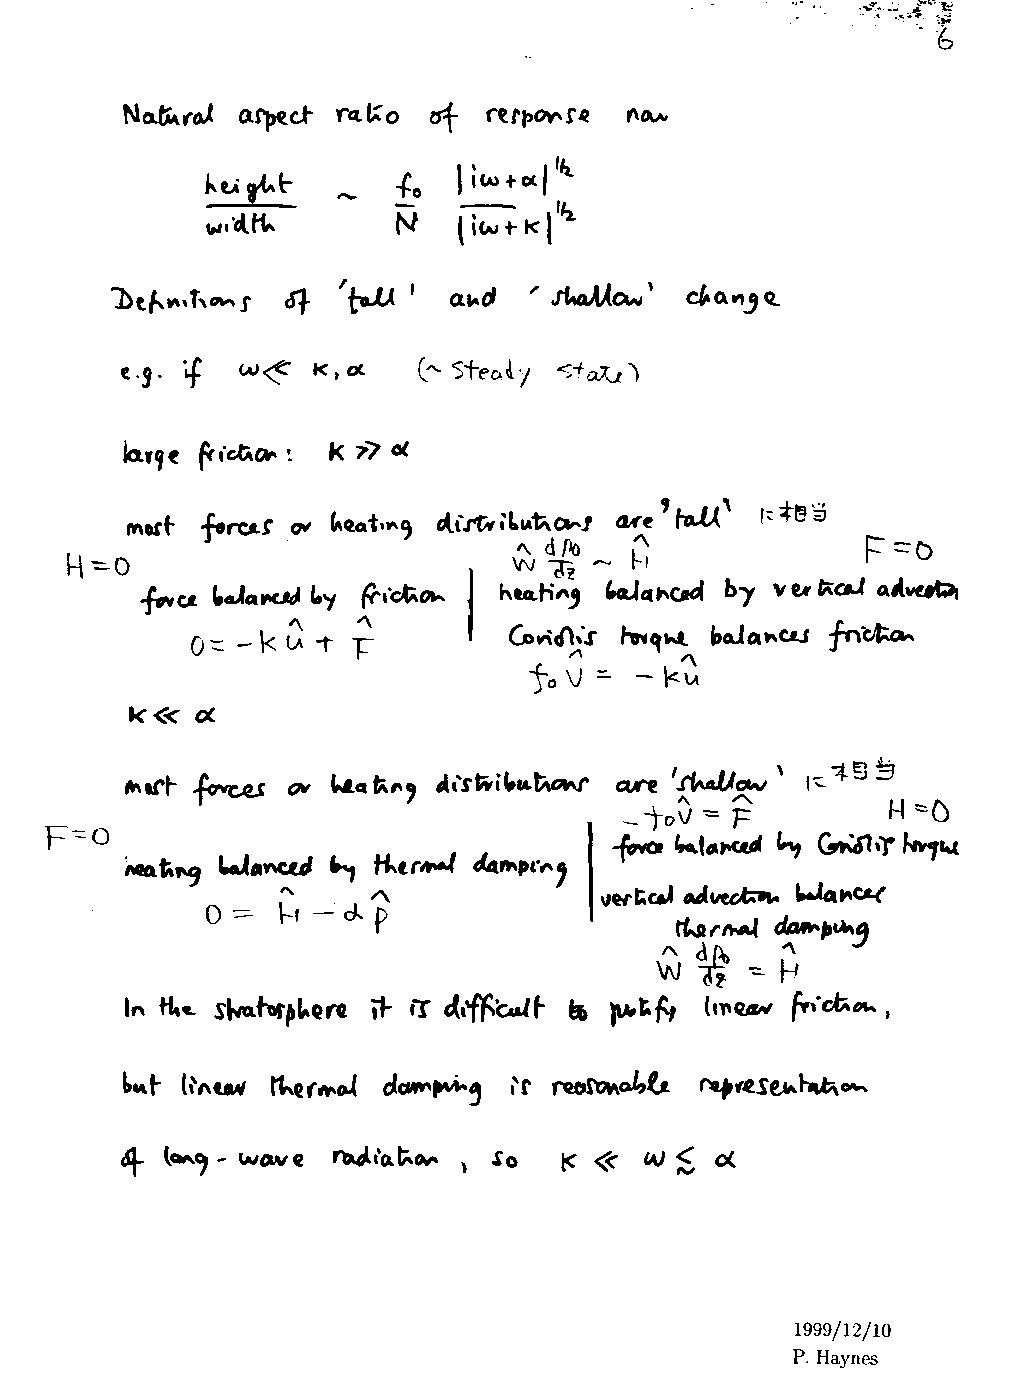 6
Natural aspect ratio of response now
height/width ~ f₀/N |iω+α|^1/2 / |iω+κ|^1/2
Definitions of 'tall' and 'shallow' change
e.g. if ω ≪ κ, α (~ steady state)
large friction: κ ≫ α
most forces or heating distributions are 'tall' に相当
H=0
force balanced by friction
0 = -kû + F̂
F=0
ŵ dρ₀/dz ~ Ĥ
heating balanced by vertical advection
Coriolis torque balances friction
f₀ v̂ = -kû
κ ≪ α
most forces or heating distributions are 'shallow' に相当
F=0
heating balanced by thermal damping
0 = Ĥ - αρ̂
H=0
-f₀v̂ = F̂
force balanced by Coriolis torque
vertical advection balances
thermal damping
ŵ dρ₀/dz = Ĥ
In the stratosphere it is difficult to justify linear friction,
but linear thermal damping is reasonable representation
of long-wave radiation, so κ ≪ ω ≲ α
1999/12/10
P. Haynes